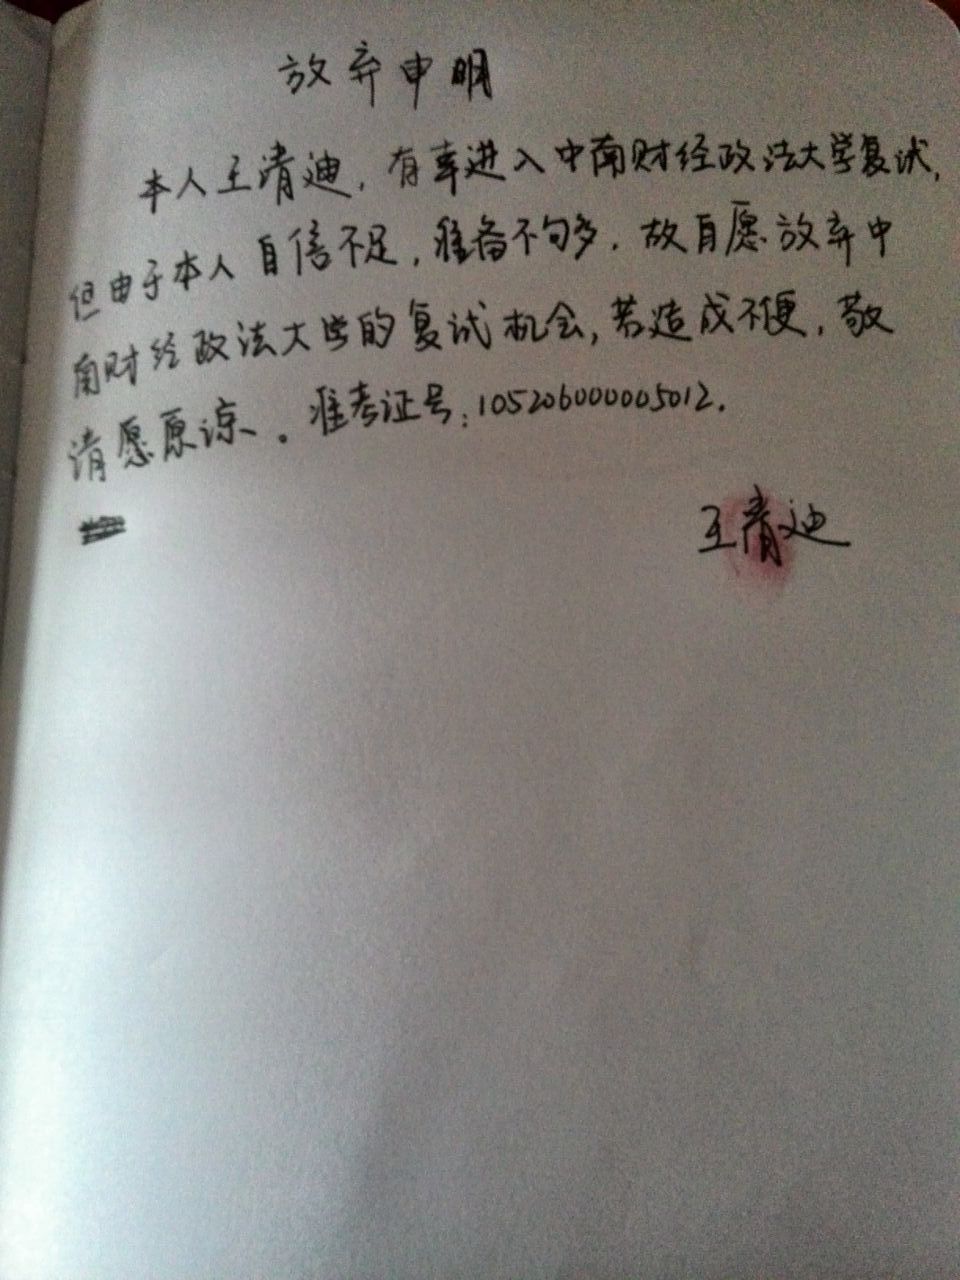 放弃申明
本人王清迪，有幸进入中南财经政法大学复试，
但由于本人自信不足，准备不旬多．故自愿放弃中
南财经政法大学的复试机会，若造成不便，敬
请愿原谅。准考证号：105206000005012．
王清迪